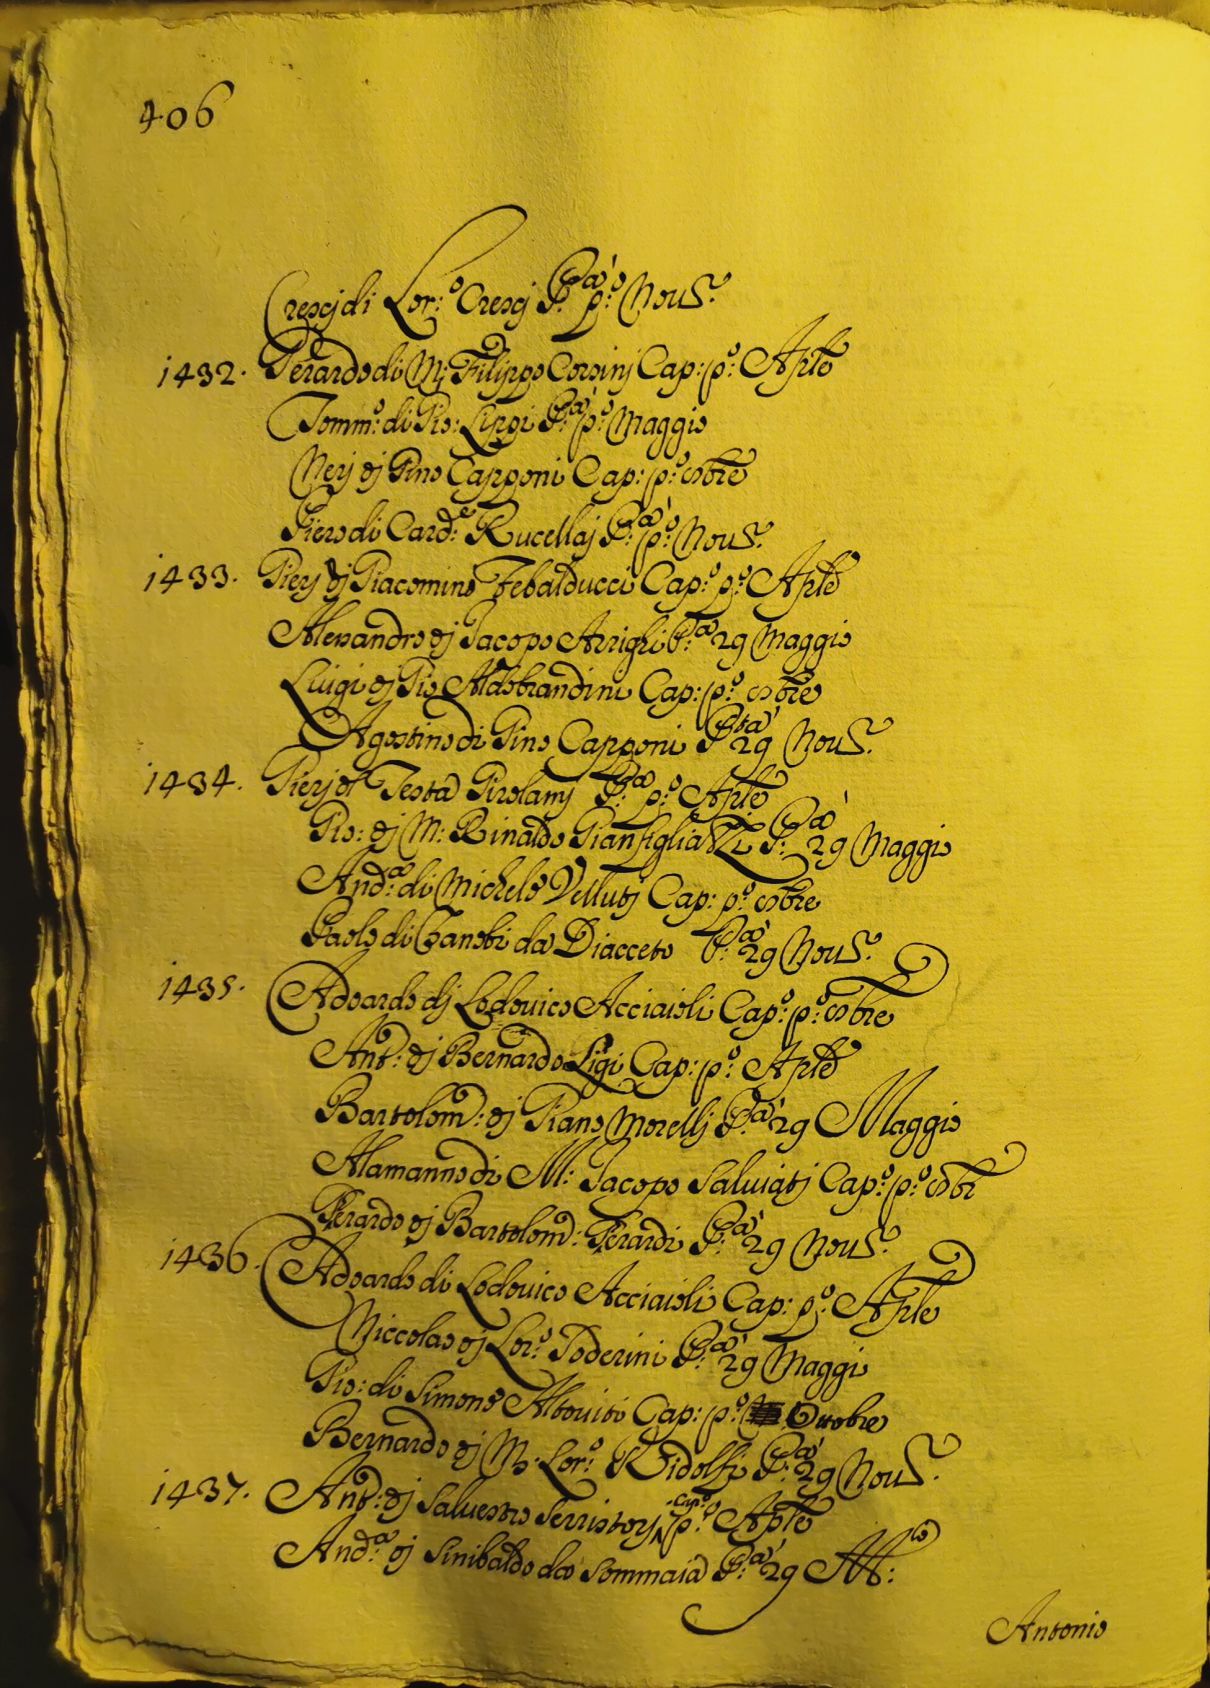 406
Crescj di Lor:º Crescj P:tà p:º Nou:e
1432. Gerardo di M: Filippo Corsinj Cap: p:º Aple
Tomm:º di Gio: Lippi P:tà p:º Maggio
Nerj dj Gino Capponi Cap: p:º 8bre
Piero di Card:e Rucellaj P:tà p:º Nou:e
1433. Pierj dj Giacomino Tebalducci Cap:º p:º Aple
Alessandro dj Jacopo Arrighi P:tà 29 Maggio
Luigi dj Gio Aldobrandini Cap: p:º 8bre
Agostino di Gino Capponi P:tà 29 Nou:e
1434. Pierj di Testa Girolamj P:tà p:º Aple
Gio: dj M: Rinaldo Gianfigliazzi P:tà 29 Maggio
And:a di Michele Vellutj Cap: p:º 8bre
Paolo di Zanobi da Diacceto P:tà 29 Nou:e
1435. Adoardo dj Lodouico Acciaioli Cap:º p:º 8bre
Ant:º dj Bernardo Ligi Cap: p:º Aple
Bartolom: dj Giano Morellj P:tà 29 Maggio
Alamanno di M: Jacopo Saluiatj Cap:º p:º 8br
Gerardo dj Bartolom: Gerardi P:tà 29 Nou:e
1436. Adoardo di Lodouico Acciaioli Cap: p:º Aple
Niccolao dj Lor:º Soderini P:tà 29 Maggio
Gio: di Simone Altouiti Cap: p:º Ottobre
Bernardo dj M: Lor:º Ridolfi P:tà 29 Nou:e
1437. Ant:º dj Saluestro Serristorj Cap:º p:º Aple
And:a dj Sinibaldo da Sommaia P:tà 29 M:º
Antonio